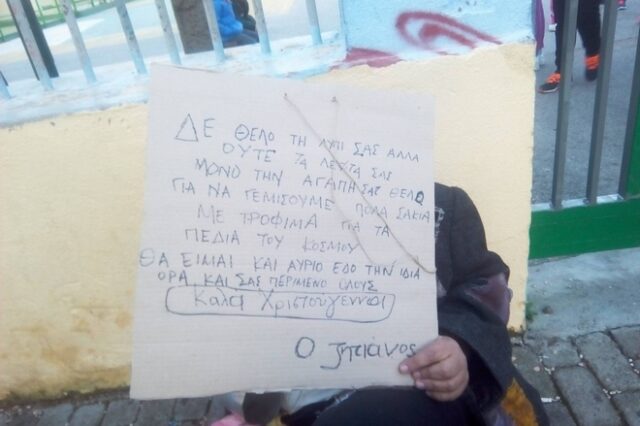 ΔΕ ΘΕΛΟ ΤΗ ΛΥΠΙ ΣΑΣ ΑΛΛΑ
ΟΥΤΕ ΤΑ ΛΕΥΤΑ ΣΑΣ
ΜΟΝΟ ΤΗΝ ΑΓΑΠΗ ΣΑΣ ΘΕΛΟ
ΓΙΑ ΝΑ ΓΕΜΙΣΟΥΜΕ ΠΟΛΑ ΣΑΚΙΑ
ΜΕ ΤΡΟΦΙΜΑ ΓΙΑ ΤΑ
ΠΕΔΙΑ ΤΟΥ ΚΟΣΜΟΥ
ΘΑ ΕΙΜΑΙ ΚΑΙ ΑΥΡΙΟ ΕΔΟ ΤΗΝ ΙΔΙΑ
ΟΡΑ ΚΑΙ ΣΑΣ ΠΕΡΙΜΕΝΟ ΟΛΟΥΣ
Καλα Χριστούγεννα
Ο ζητιάνος